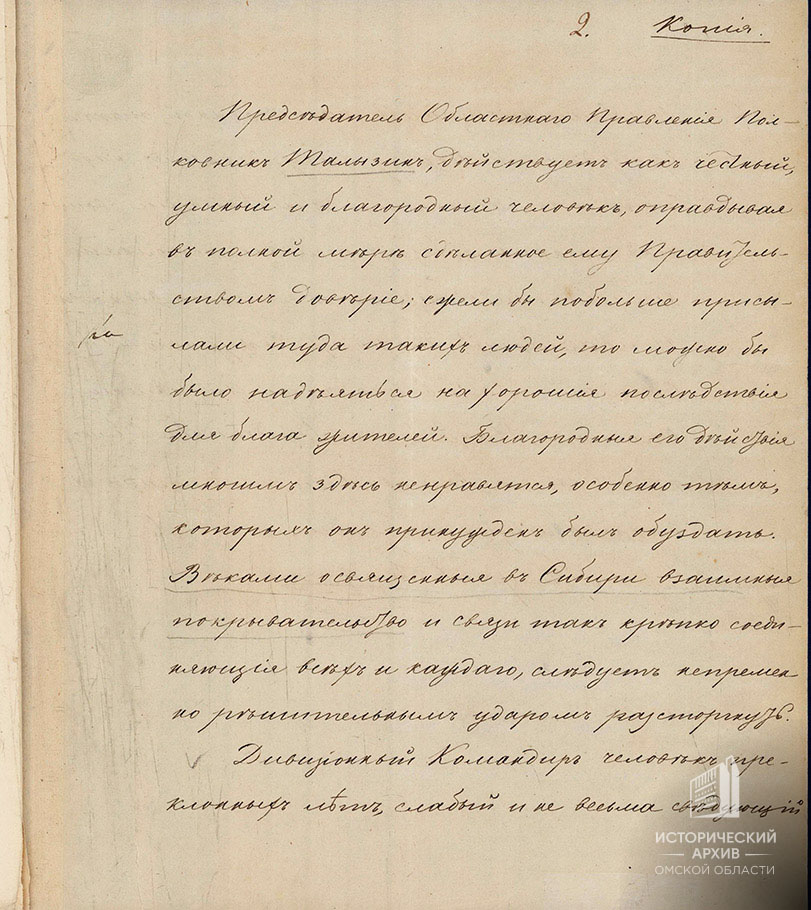 2. Копія.
Предсѣдатель Областнаго Правленія Пол-
ковникъ Талызинъ, дѣйствуетъ какъ честный,
умный и благородный человѣкъ, оправдывая
въ полной мѣрѣ сдѣланное ему Правитель-
ствомъ довѣріе; ежели бы побольше присы-
лали туда такихъ людей, то можно бы
было надѣяться на хорошія послѣдствія
для блага жителей. Благородныя его дѣйствія
многимъ здѣсь ненравятся, особенно тѣмъ,
которыхъ онъ принужденъ былъ обуздать.
Вѣками освященныя въ Сибири взаимныя
покрывательство и связи такъ крѣпко соеди-
няющія всѣхъ и каждаго, слѣдуетъ непремен
но рѣшительнымъ ударомъ расторгнуть.
Дивизіонный Командиръ человѣкъ пре-
клонныхъ лѣтъ, слабый и не весьма свѣдующій
ИСТОРИЧЕСКИЙ
АРХИВ
ОМСКОЙ ОБЛАСТИ